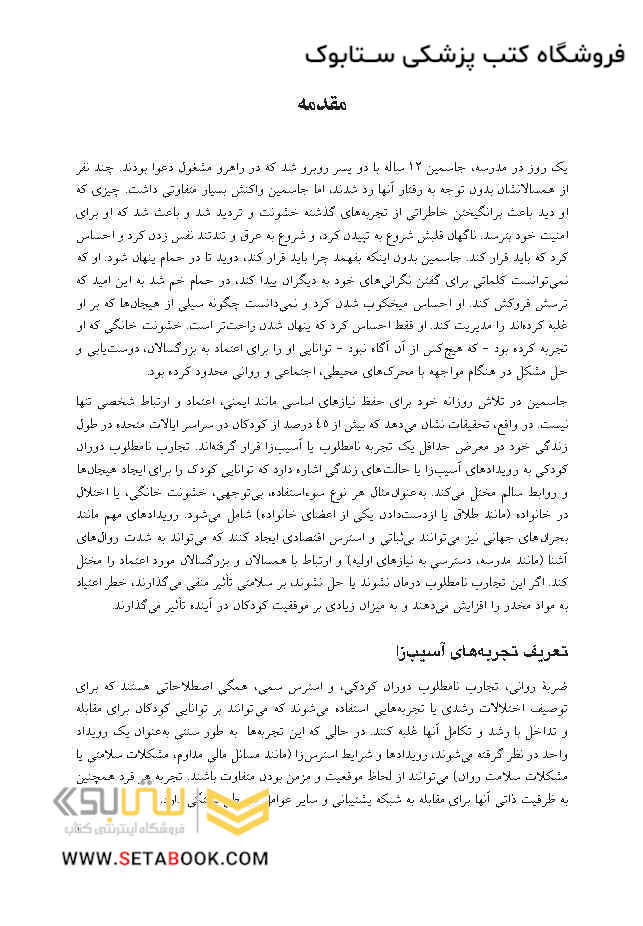 فروشگاه کتب پزشکی ستابوک
مقدمه
یک روز در مدرسه، جاسمین ۱۲ ساله با دو پسر روبرو شد که در راهرو مشغول دعوا بودند. چند نفر
از همسالانشان بدون توجه به رفتار آنها رد شدند، اما جاسمین واکنش بسیار متفاوتی داشت. چیزی که
او دید باعث برانگیختن خاطراتی از تجربه‌های گذشته خشونت و تردید شد و باعث شد که او برای
امنیت خود بترسد. ناگهان قلبش شروع به تپیدن کرد، و شروع به عرق و تندتند نفس زدن کرد و احساس
کرد که باید فرار کند. جاسمین بدون اینکه بفهمد چرا باید فرار کند، دوید تا در حمام پنهان شود. او که
نمی‌توانست کلماتی برای گفتن نگرانی‌های خود به دیگران پیدا کند، در حمام خم شد به این امید که
ترسش فروکش کند. او احساس میخکوب شدن کرد و نمی‌دانست چگونه سیلی از هیجان‌ها که بر او
غلبه کرده‌اند را مدیریت کند. او فقط احساس کرد که پنهان شدن راحت‌تر است. خشونت خانگی که او
تجربه کرده بود – که هیچ‌کس از آن آگاه نبود – توانایی او را برای اعتماد به بزرگسالان، دوست‌یابی و
حل مشکل در هنگام مواجهه با محرک‌های محیطی، اجتماعی و روانی محدود کرده بود.
جاسمین در تلاش روزانه خود برای حفظ نیازهای اساسی مانند ایمنی، اعتماد و ارتباط شخصی تنها
نیست. در واقع، تحقیقات نشان می‌دهد که بیش از ٤٥ درصد از کودکان در سراسر ایالات متحده در طول
زندگی خود در معرض حداقل یک تجربه نامطلوب یا آسیب‌زا قرار گرفته‌اند. تجارب نامطلوب دوران
کودکی به رویدادهای آسیب‌زا یا حالت‌های زندگی اشاره دارد که توانایی کودک را برای ایجاد هیجان‌ها
و روابط سالم مختل می‌کند. به‌عنوان‌مثال هر نوع سوءاستفاده، بی‌توجهی، خشونت خانگی، یا اختلال
در خانواده (مانند طلاق یا ازدست‌دادن یکی از اعضای خانواده) شامل می‌شود. رویدادهای مهم مانند
بحران‌های جهانی نیز می‌توانند بی‌ثباتی و استرس اقتصادی ایجاد کنند که می‌تواند به شدت روال‌های
آشنا (مانند مدرسه، دسترسی به نیازهای اولیه) و ارتباط با همسالان و بزرگسالان مورد اعتماد را مختل
کند. اگر این تجارب نامطلوب درمان نشوند یا حل نشوند، بر سلامتی تأثیر منفی می‌گذارند، خطر اعتیاد
به مواد مخدر را افزایش می‌دهند و به میزان زیادی بر موفقیت کودکان در آینده تأثیر می‌گذارند.
تعریف تجربه‌های آسیب‌زا
ضربهٔ روانی، تجارب نامطلوب دوران کودکی، و استرس سمی، همگی اصطلاحاتی هستند که برای
توصیف اختلالات رشدی یا تجربه‌هایی استفاده می‌شوند که می‌توانند بر توانایی کودکان برای مقابله
و تداخل با رشد و تکامل آنها غلبه کنند. در حالی که این تجربه‌ها به طور سنتی به‌عنوان یک رویداد
واحد در نظر گرفته می‌شوند، رویدادها و شرایط استرس‌زا (مانند مسائل مالی مداوم، مشکلات سلامتی یا
مشکلات سلامت روان) می‌توانند از لحاظ موقعیت و مزمن بودن متفاوت باشند. تجربه هر فرد همچنین
به ظرفیت ذاتی آنها برای مقابله به شبکه پشتیبانی و سایر عوامل
ستابوک
فروشگاه اینترنتی کتاب
WWW.SETABOOK.COM